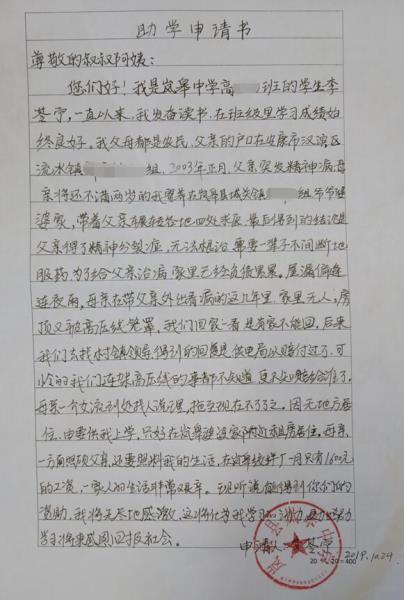 助学申请书
尊敬的叔叔阿姨:
您们好!我是岚皋中学高 班的学生李
,一直以来,我发奋读书,在班级里学习成绩始
终良好。我父母都是农民,父亲的户口在安康市汉滨区
流水镇 组,2003年正月,父亲突发精神病,母
亲将还不满两岁的我寄养在岚皋县城关镇 组爷爷
婆家,带着父亲 各地四处求医,最后得到的结论是
父亲得了精神分裂症,无法根治,需要一辈子不间断地
服药,为了给父亲治病,家里已经负债累累。屋漏偏逢
连夜雨,母亲在带父亲外出看病的这几年里,家里无人,房
顶又被高压线笼罩,我们回家一看是有家不能回,后来
我们去找村镇领导,得到的回应是供电局以赔付过了,可
怜的我们连架高压线的事都不知道,更不知赔给谁了。
母亲一个女流到处找人说理,拖至现在不了了之。因无地方居
住,由要供我上学,只好在岚皋 家附近租房居住。母亲
一方面照顾父亲,还要照料我的生活,在 一月只有1600元
的工资,一家人的生活非常艰辛。现听说能得到你们的
资助,我将无尽地感激,这将化为我学习的动力,更加努力
学习将来感恩回报社会。
申请人:
2019.10.24
20×20=400